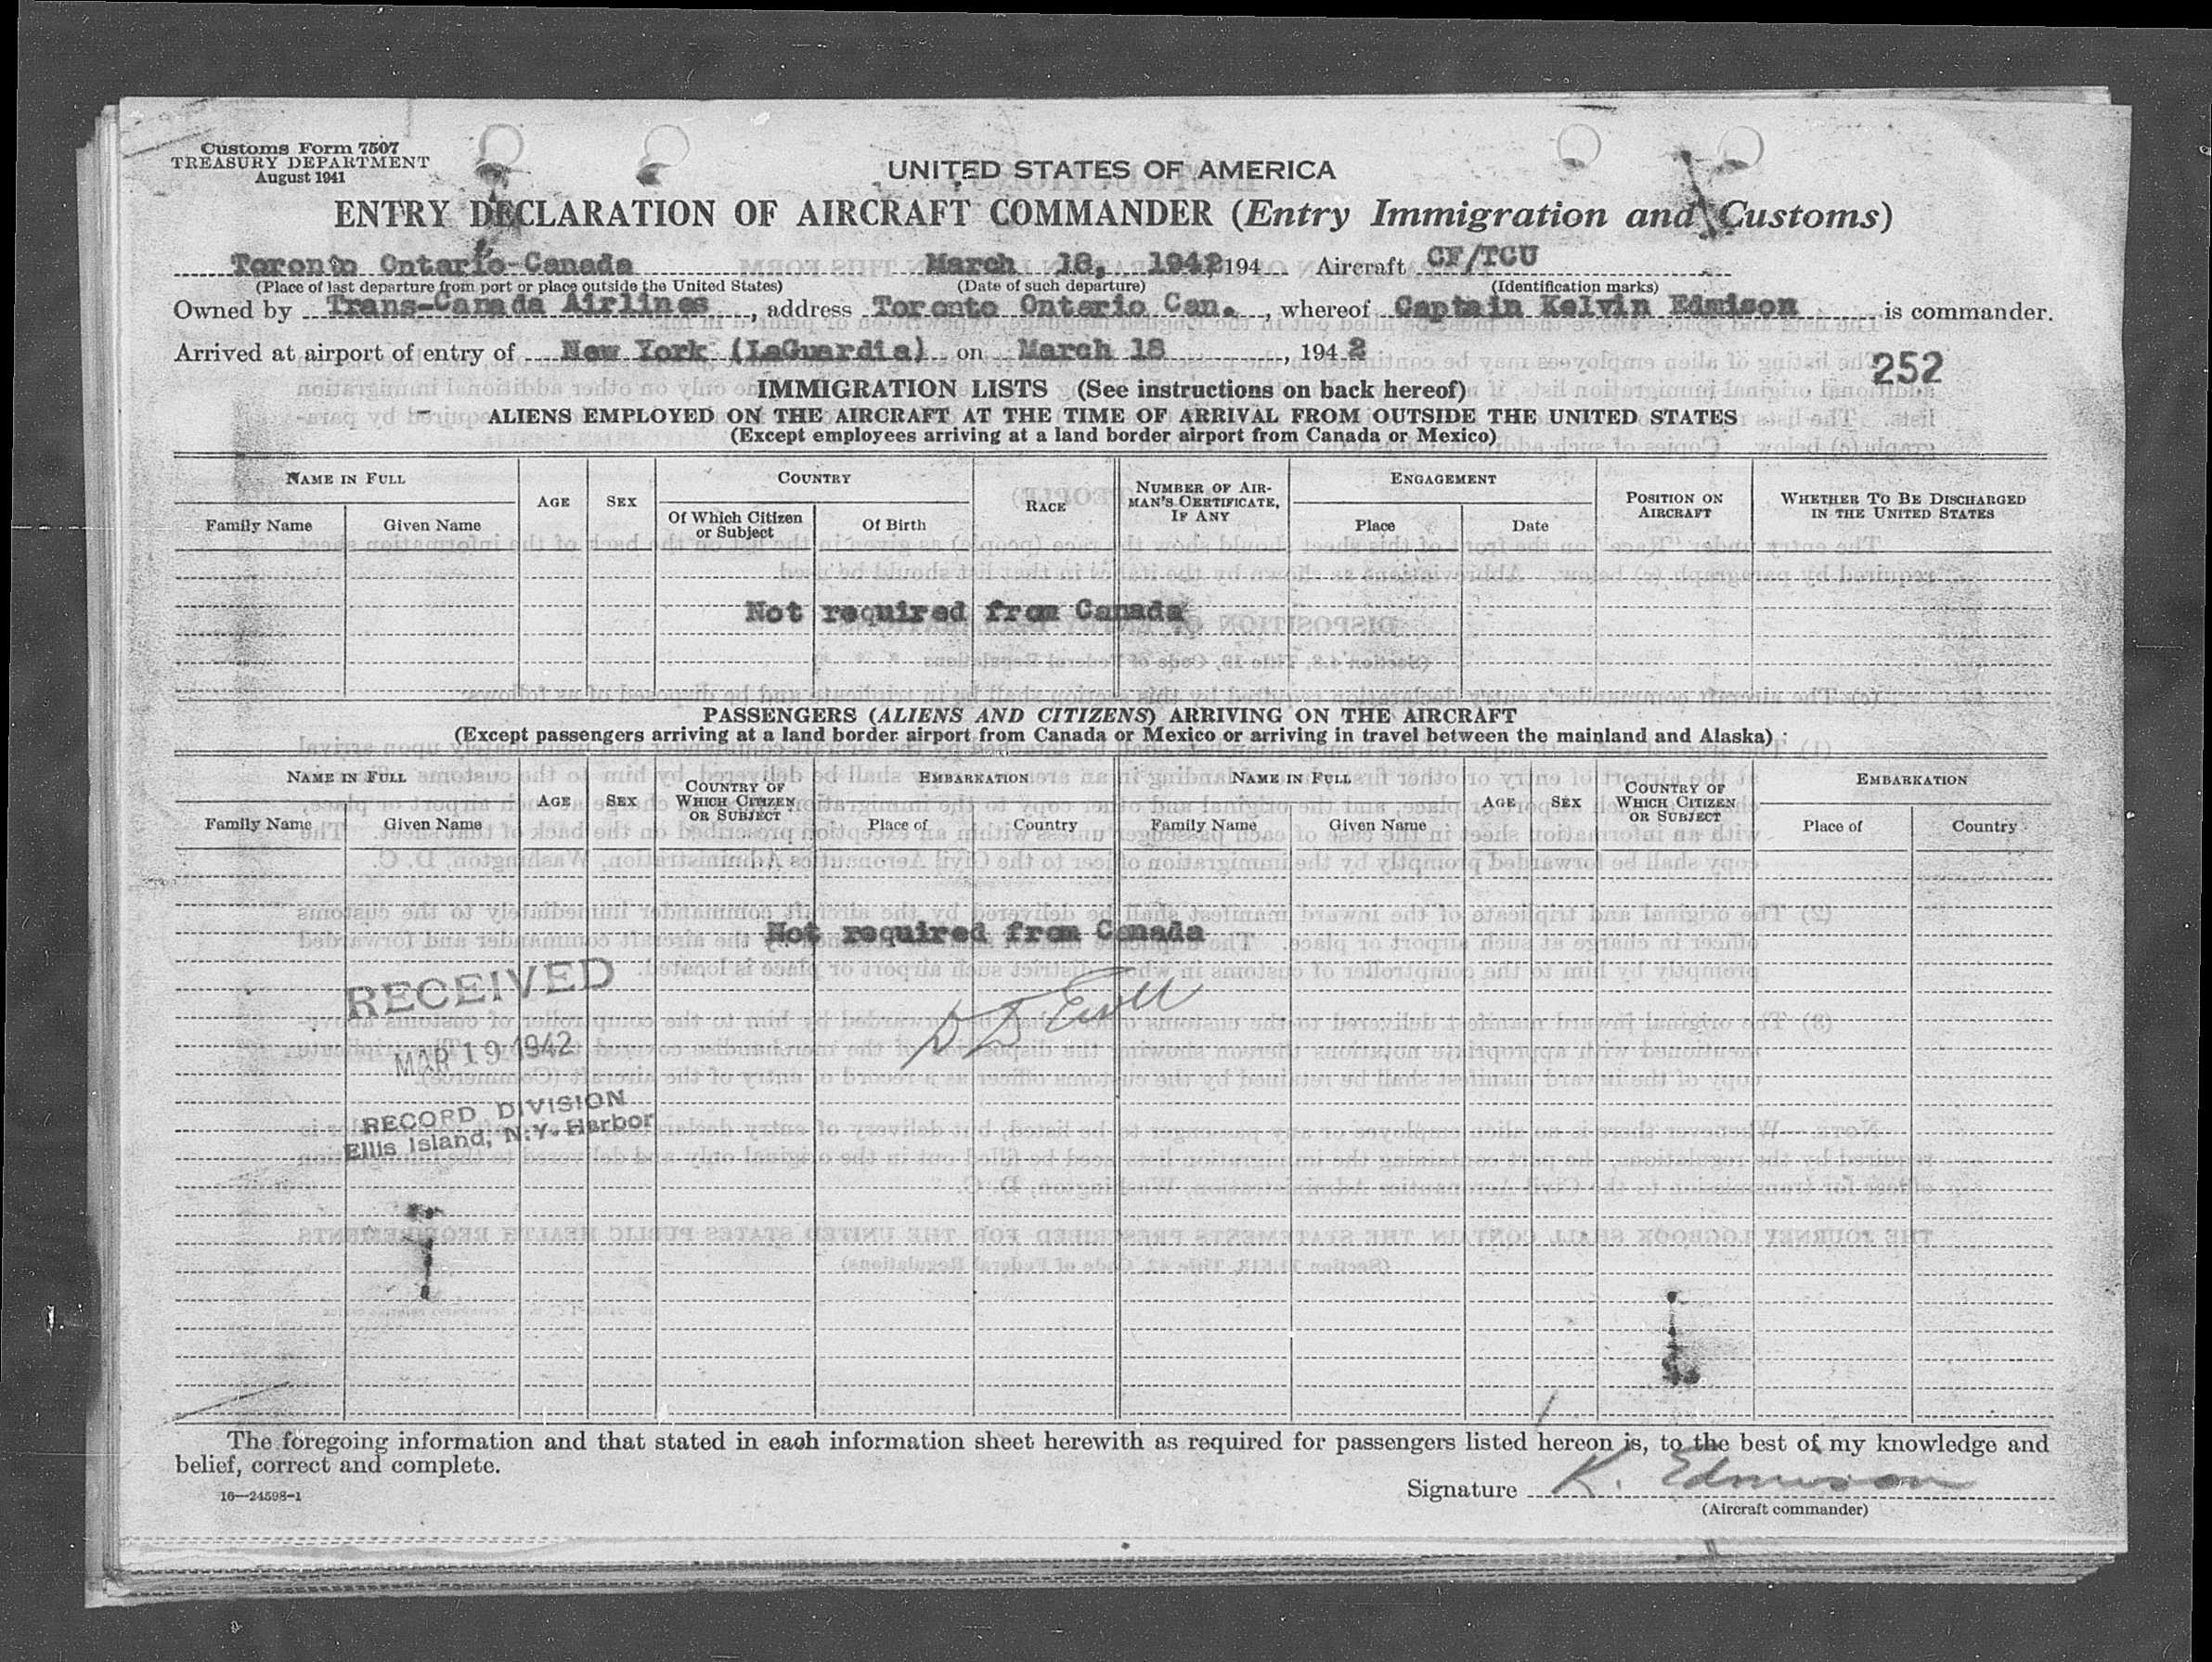 Customs Form 7507
TREASURY DEPARTMENT
August 1941
UNITED STATES OF AMERICA
ENTRY DECLARATION OF AIRCRAFT COMMANDER (Entry Immigration and Customs)
Toronto Ontario-Canada March 18, 1942, 194 Aircraft CF/TCU
(Place of last departure from port or place outside the United States) (Date of such departure) (Identification marks)
Owned by Trans-Canada Airlines, address Toronto Ontario Can., whereof Captain Kelvin Edmison is commander.
Arrived at airport of entry of New York (LaGuardia) on March 18, 1942
252
IMMIGRATION LISTS (See instructions on back hereof)
ALIENS EMPLOYED ON THE AIRCRAFT AT THE TIME OF ARRIVAL FROM OUTSIDE THE UNITED STATES
(Except employees arriving at a land border airport from Canada or Mexico)
NAME IN FULL
Family Name Given Name
AGE
SEX
COUNTRY
Of Which Citizen or Subject
Of Birth
RACE
NUMBER OF AIRMAN'S CERTIFICATE, IF ANY
ENGAGEMENT
Place Date
POSITION ON AIRCRAFT
WHETHER TO BE DISCHARGED IN THE UNITED STATES
Not required from Canada
PASSENGERS (ALIENS AND CITIZENS) ARRIVING ON THE AIRCRAFT
(Except passengers arriving at a land border airport from Canada or Mexico or arriving in travel between the mainland and Alaska)
NAME IN FULL
Family Name Given Name
AGE
SEX
COUNTRY OF WHICH CITIZEN OR SUBJECT
EMBARKATION
Place of Country
NAME IN FULL
Family Name Given Name
AGE
SEX
COUNTRY OF WHICH CITIZEN OR SUBJECT
EMBARKATION
Place of Country
Not required from Canada
RECEIVED
MAR 19 1942
RECORD DIVISION
Ellis Island, N.Y. Harbor
The foregoing information and that stated in each information sheet herewith as required for passengers listed hereon is, to the best of my knowledge and
belief, correct and complete.
16—24598-1
Signature K. Edmison
(Aircraft commander)